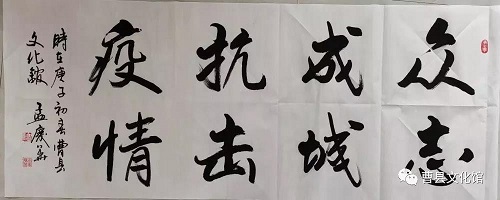 众志
成城
抗击
疫情
時在庚子初春曹县
文化馆 孟庆华
曹县文化馆